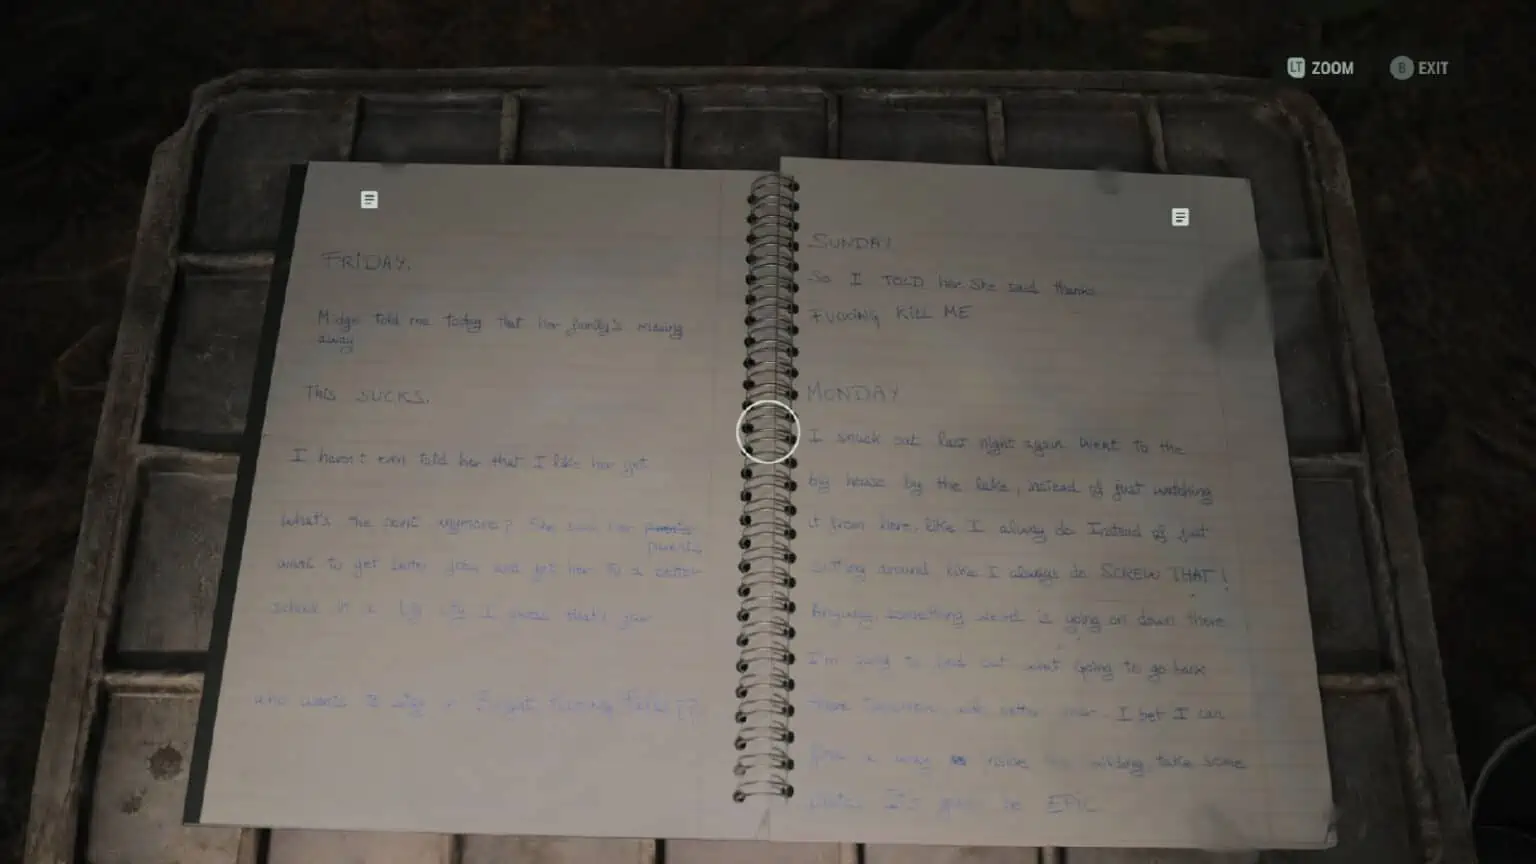 LT ZOOM B EXIT
FRIDAY.
Midge told me today that her family's moving
away
THIS SUCKS.
I haven't even told her that I like her yet
What's the point anymore? She said her parent's
parents
want to get better jobs and get her to a better
school in a big city I guess that's fair
who wants to stay in Bright Fucking Falls??
SUNDAY
So I TOLD her She said thanks
FUCKING KILL ME
MONDAY
I snuck out last night again Went to the
big house by the lake, instead of just watching
it from here, like I always do Instead of just
sitting around like I always do SCREW THAT!
Anyway something weird is going on down there
I'm going to find out what Going to go back
there tomorrow, I bet I can
find a way inside building take some
photos It's gonna be EPIC